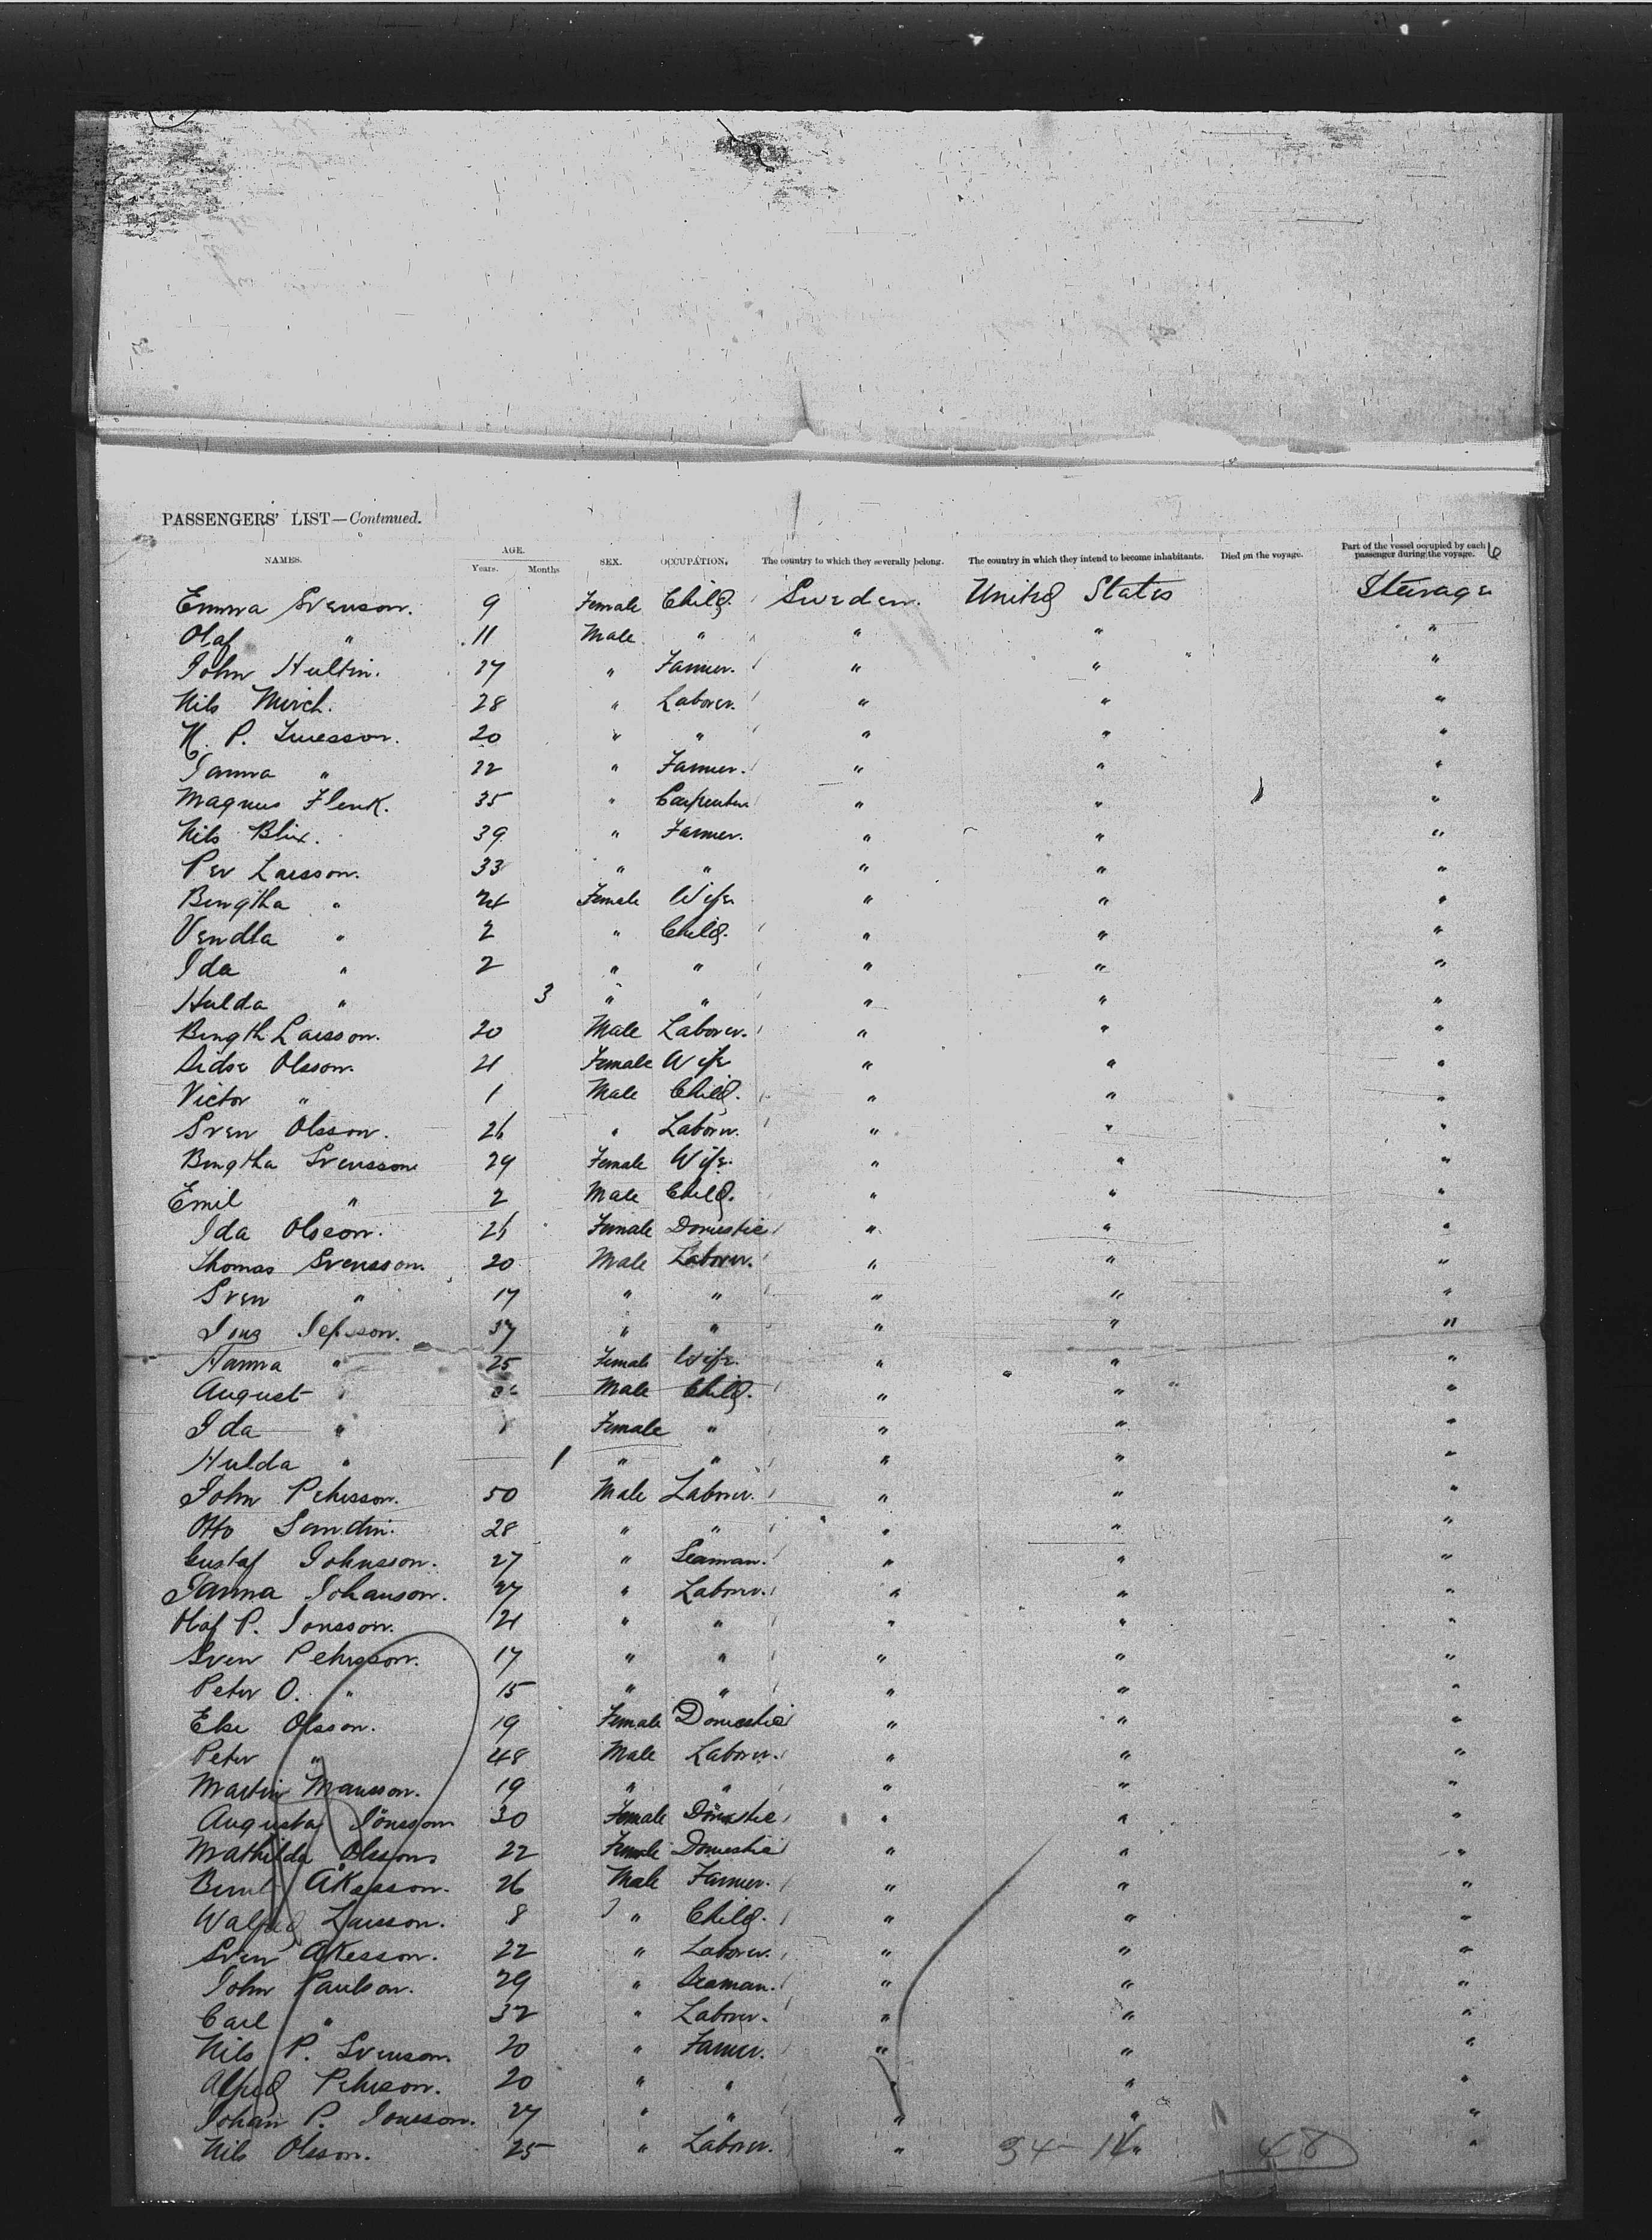 PASSENGERS' LIST—Continued.
NAMES. AGE. Years. Months SEX. OCCUPATION. The country to which they severally belong. The country in which they intend to become inhabitants. Died on the voyage. Part of the vessel occupied by each passenger during the voyage. 6
Emma Svenson. 9 Female Child. Sweden. United States Steerage
Olaf " 11 Male " " " "
John Hultin. 27 " Farmer. " " "
Nils Mirch. 28 " Laborer. " " "
N. P. 20 " " " " "
Janna " 22 " Farmer. " " "
Magnus Flenk. 35 " Carpenter " " "
Nils Blix. 39 " Farmer. " " "
Per Larsson. 33 " " " " "
Bengtha " 24 Female Wife " " "
Vendla " 2 " Child. " " "
Ida " 2 " " " " "
Hulda " 3 " " " " "
Bength Larsson. 20 Male Laborer. " " "
Sidse Olsson. 21 Female Wife " " "
Victor " 1 Male Child. " " "
Sven Olsson. 26 " Laborer. " " "
Bengtha Svensson 29 Female Wife. " " "
Emil " 2 Male Child. " " "
Ida Olseon. 26 Female Domestic " " "
Thomas Svensson. 20 Male Laborer. " " "
Sven " 17 " " " " "
Jöns Jepsson. 37 " " " " "
Hanna " 25 Female Wife. " " "
August " Male Child. " " "
Ida " Female " " " "
Hulda " 1 " " " " "
John Pehrsson. 50 Male Laborer. " " "
Otto Sandin. 28 " " " " "
Gustaf Johnsson. 27 " Seaman. " " "
Janna Johanson. 27 " Laborer. " " "
Olaf P. Jonsson. 21 " " " " "
Sven Pehrsson. 17 " " " " "
Peter O. " 15 " " " " "
Else Olsson. 19 Female Domestic " " "
Peter " 48 Male Laborer. " " "
Martin Mansson. 19 " " " " "
Augusta Jönsson 30 Female Domestic " " "
Mathilda Olsson 22 Female Domestic " " "
Åkesson. 26 Male Farmer. " " "
Walfred Larsson. 8 " Child. " " "
Sven Åkesson. 22 " Laborer. " " "
John Paulson. 29 " Seaman. " " "
Carl " 32 " Laborer. " " "
Nils P. Svenson. 20 " Farmer. " " "
Alfred Pehrson. 20 " " " " "
Johan P. Jonsson. 27 " " " " "
Nils Olsson. 25 " Laborer. " " "
34-14 48